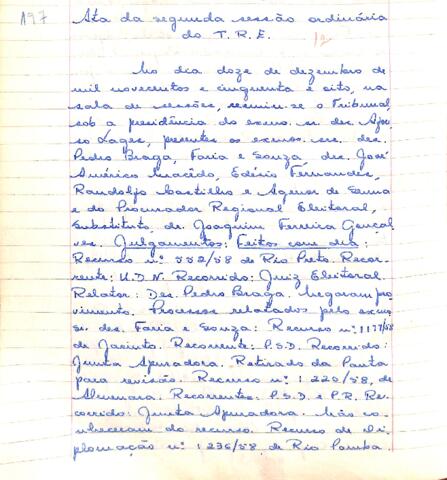 197
Ata da segunda sessão ordinária
do T. R. E.
12
No dia doze de dezembro de
mil novecentos e cinquenta e oito, na
sala de sessões, reuniu-se o Tribunal,
sob a presidência do exmo. sr. des. Afon-
so Lages, presentes os exmos. srs. des.
Pedro Braga, Faria e Souza, drs. José
Américo Macêdo, Edésio Fernandes,
Randolfo Castilho e Agenor de Senna
e do Procurador Regional Eleitoral,
Substituto, dr. Joaquim Ferreira Gonçal-
ves. Julgamentos: Feitos com dia:
Recurso nº 552/58 de Rio Preto. Recor-
rente: U.D.N. Recorrido: Juiz Eleitoral.
Relator: Des. Pedro Braga. Negaram pro-
vimento. Processos relatados pelo exmo.
sr. des. Faria e Souza: Recurso nº 1177/58
de Jacinto. Recorrente: P.S.D. Recorrido:
Junta Apuradora. Retirado da Pauta
para revisão. Recurso nº 1220/58, de
Almenara. Recorrentes: P.S.D. e P.R. Re-
corrido: Junta Apuradora. Não co-
nheceram do recurso. Recurso de Di-
plomação nº 1236/58 de Rio Pomba.